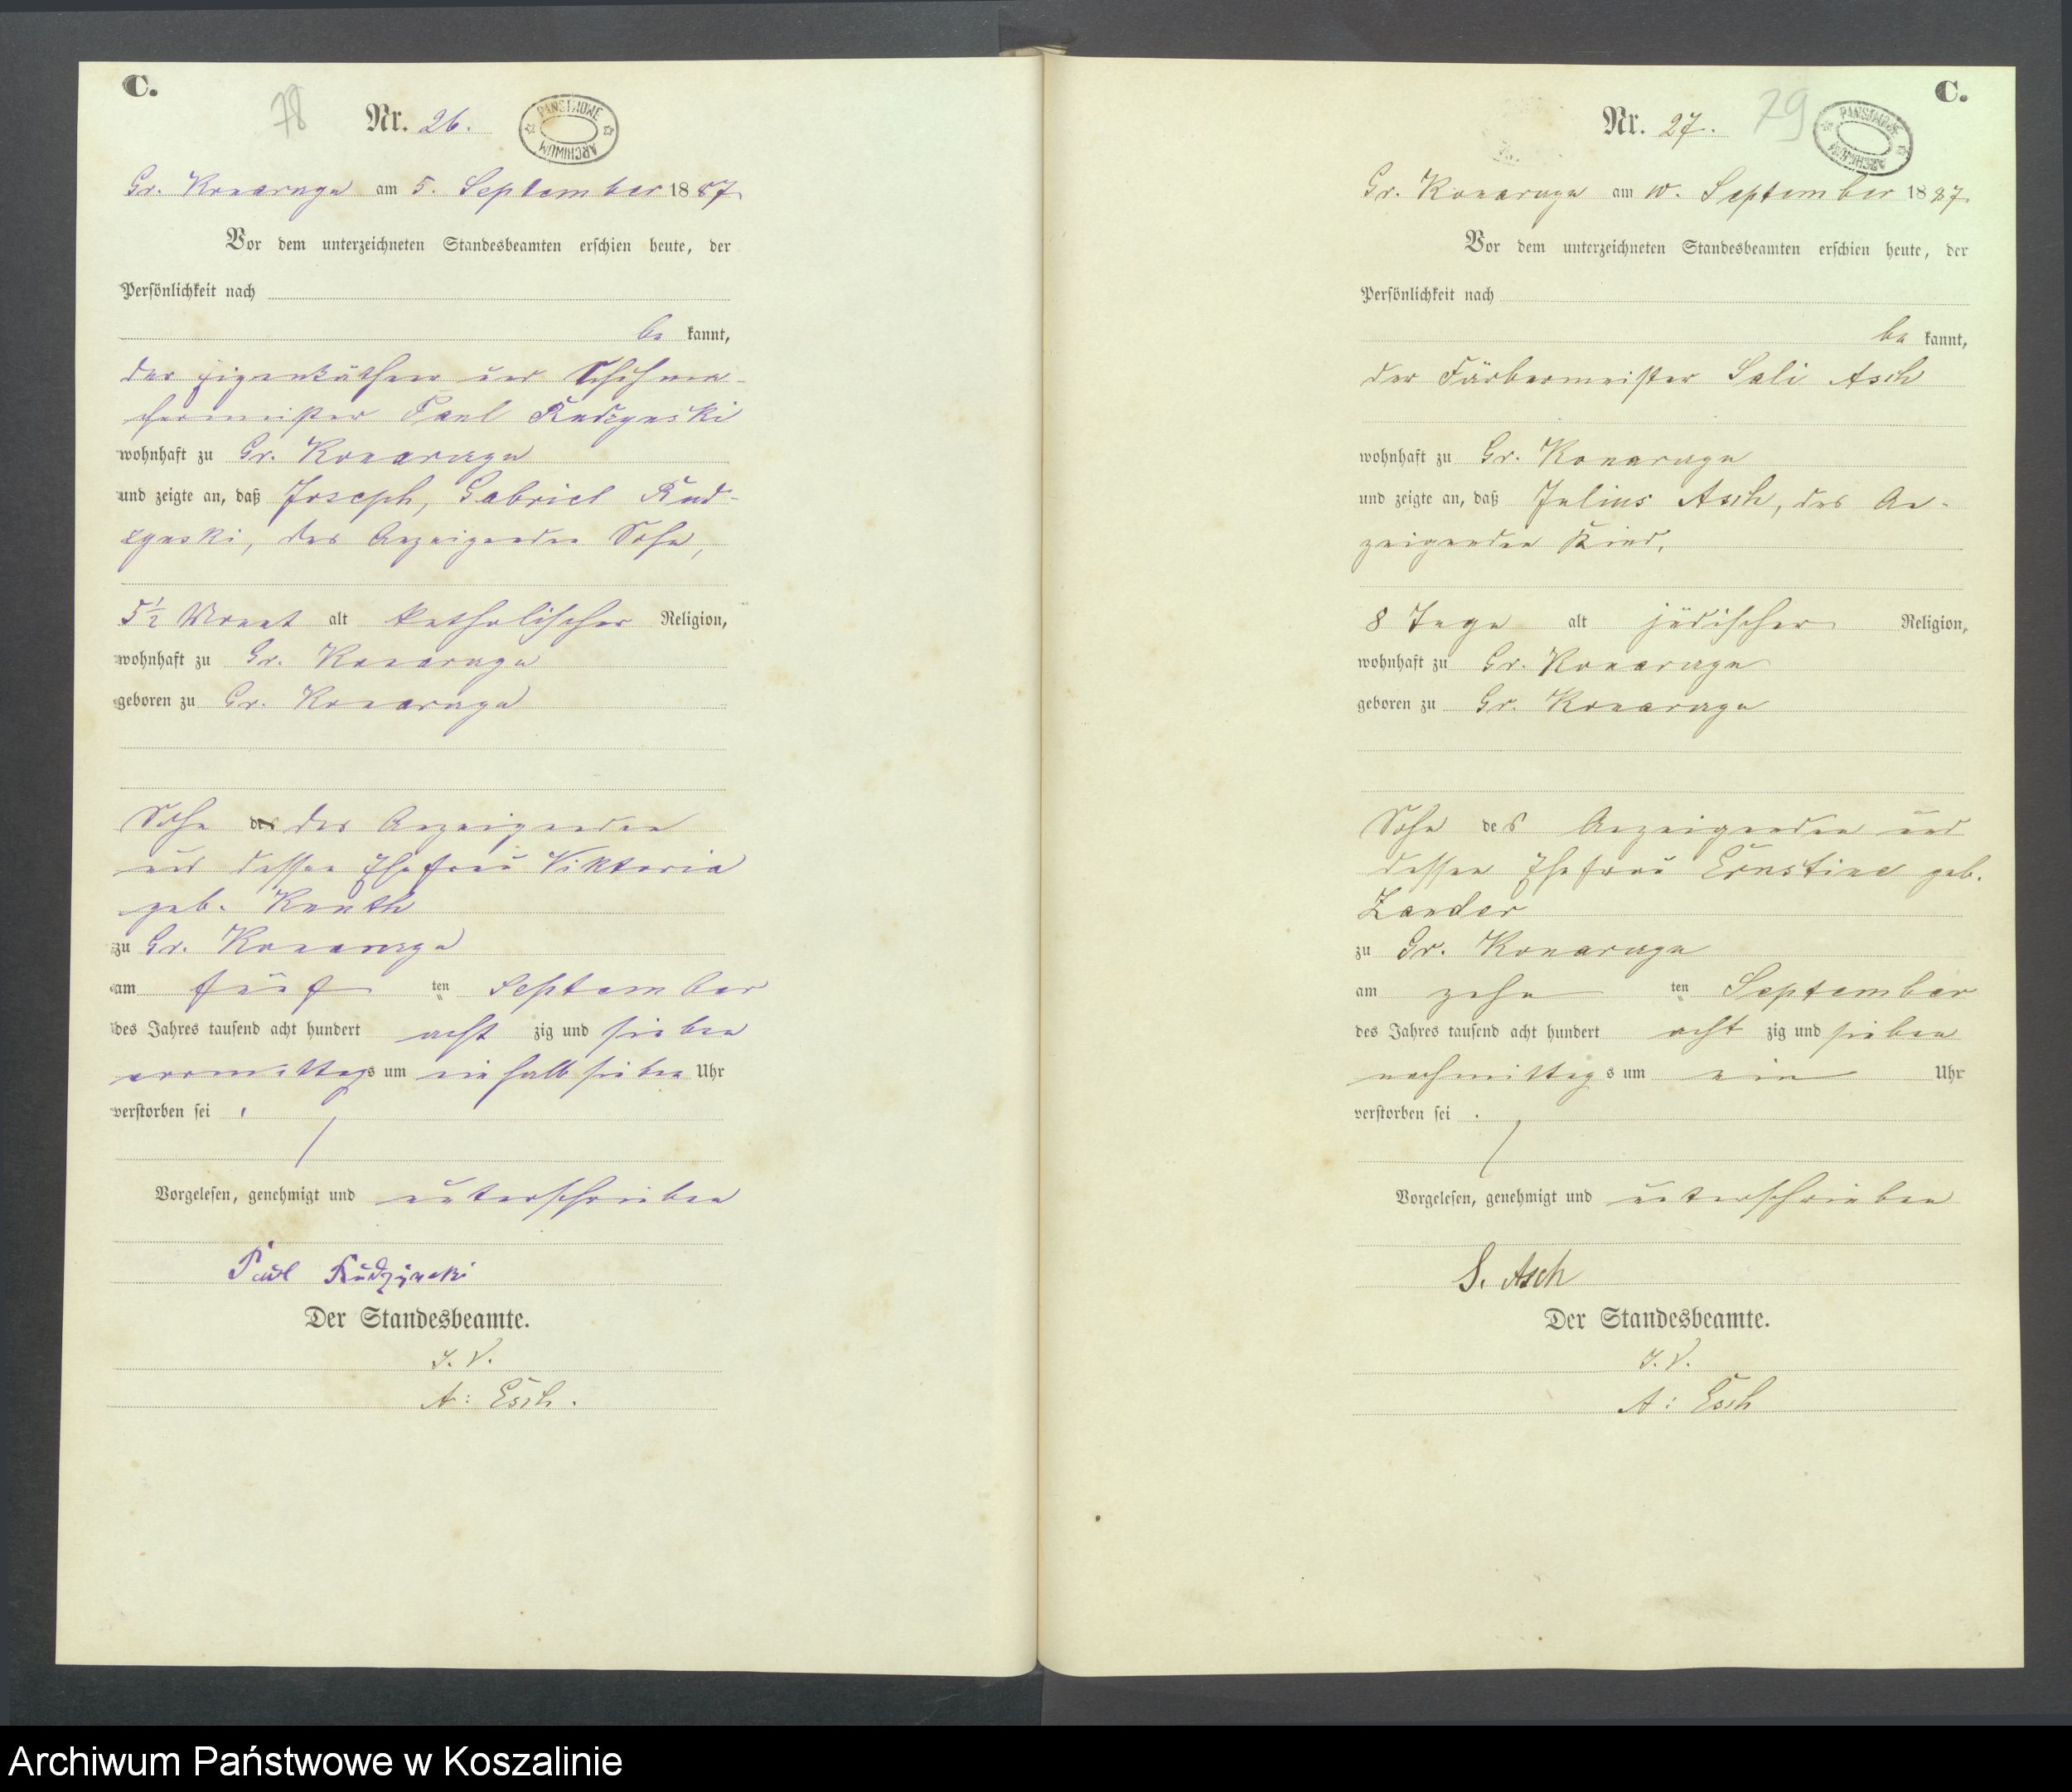 C.
78
Nr. 26.
PAŃSTWOWE ARCHIWUM
Gr. Konarczyn am 5. September 1887
Vor dem unterzeichneten Standesbeamten erschien heute, der
Persönlichkeit nach
be kannt,
der Eigenkäthner und Schuhma-
chermeister Paul Rudzynski
wohnhaft zu Gr. Konarczyn
und zeigte an, daß Joseph, Gabriel Rud-
zynski, des Anzeigenden Sohn,
5½ Monat alt katholischer Religion,
wohnhaft zu Gr. Konarczyn
geboren zu Gr. Konarczyn
Sohn des Anzeigenden
und dessen Ehefrau Viktoria
geb. Knuth
zu Gr. Konarczyn
am fünf ten September
des Jahres tausend acht hundert acht zig und sieben
vormittags um einhalb sieben Uhr
verstorben sei
Vorgelesen, genehmigt und unterschrieben
Paul Rudzynski
Der Standesbeamte.
I. V.
A: Esch.
C.
Nr. 27.
79
PAŃSTWOWE ARCHIWUM
Gr. Konarczyn am 10. September 1887
Vor dem unterzeichneten Standesbeamten erschien heute, der
Persönlichkeit nach
be kannt,
der Färbermeister Sali Asch
wohnhaft zu Gr. Konarczyn
und zeigte an, daß Julius Asch, des An-
zeigenden Kind,
8 Tage alt jüdischer Religion,
wohnhaft zu Gr. Konarczyn
geboren zu Gr. Konarczyn
Sohn des Anzeigenden und
dessen Ehefrau Ernstine geb.
Zander
zu Gr. Konarczyn
am zehn ten September
des Jahres tausend acht hundert acht zig und sieben
nachmittags um ein Uhr
verstorben sei.
Vorgelesen, genehmigt und unterschrieben
S. Asch
Der Standesbeamte.
I. V.
A: Esch
Archiwum Państwowe w Koszalinie